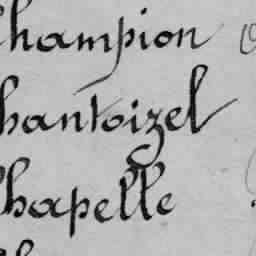 Champion
Chantoizel
Chapelle